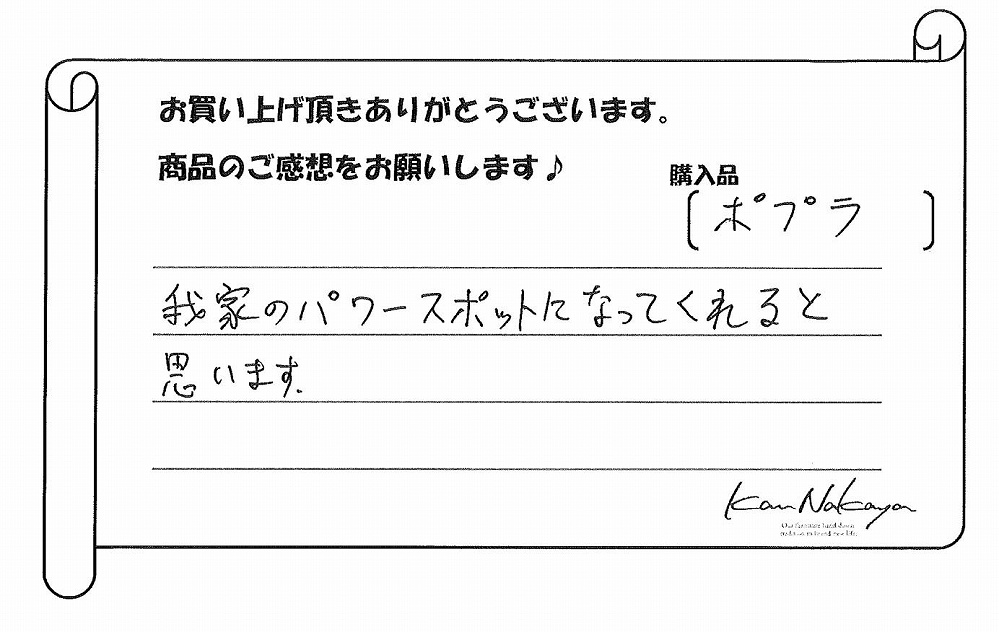 お買い上げ頂きありがとうございます。
商品のご感想をお願いします♪
購入品
〔ポプラ〕
我家のパワースポットになってくれると
思います.
Kan Nakaya